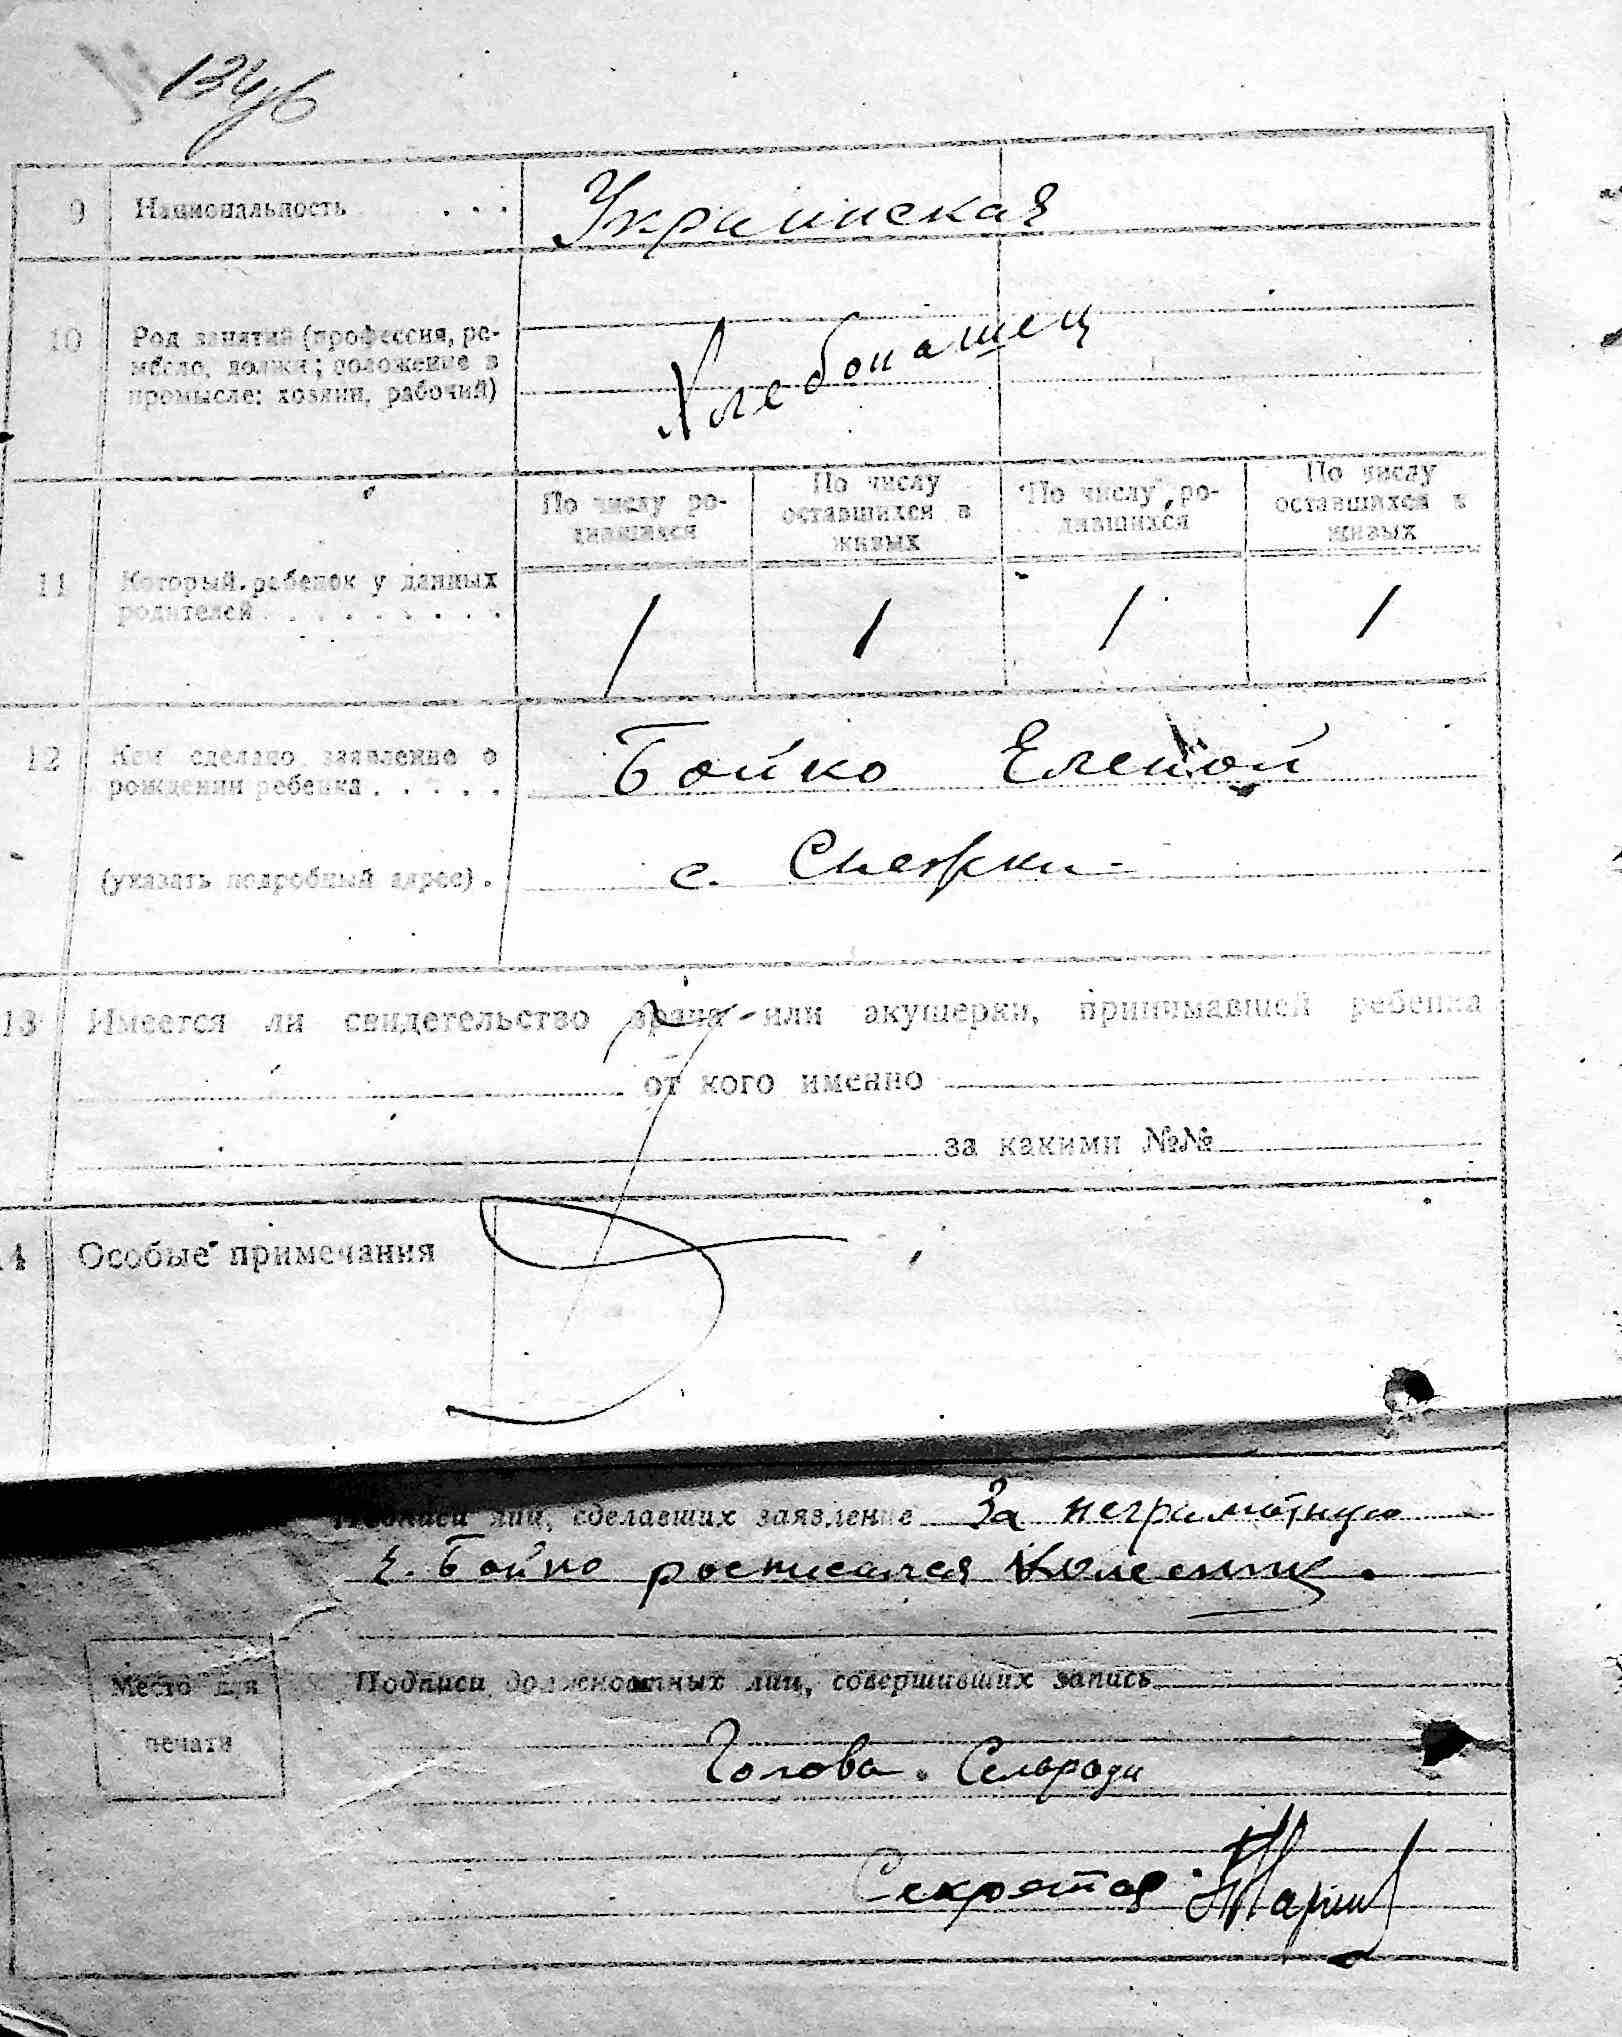 134
9 Национальность . . . Украинская
10 Род занятий (профессия, ре-
месло, должн; положение в
промысле: хозяин, рабочий)
Хлебопашец
По числу ро-
дившихся
По числу
оставшихся в
живых
По числу ро-
дившихся
По числу
оставшихся в
живых
11 Который ребенок у данных
родителей . . . . . . . .
1 1 1 1
12 Кем сделано заявление о
рождении ребенка . . . . .
Бойко Еленой
(указать подробный адрес) . с. Снежки
13 Имеется ли свидетельство врача или акушерки, принимавшей ребенка
от кого именно
за какими №№
14 Особые примечания
Подписи лиц, сделавших заявление За неграмотную
Е. Бойко росписался Колесник.
Место для
печати
Подписи должностных лиц, совершивших запись
Голова Сельради
Секретар